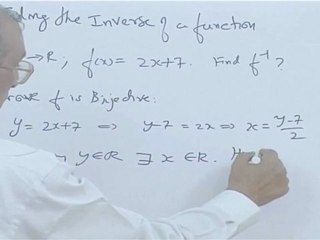 the Inverse of a function
→R, f(x) = 2x+7. Find f⁻¹?
f is Bijective:
y = 2x+7 ⇒ y-7 = 2x ⇒ x = (y-7)/2
y∈R ∃ x ∈R.